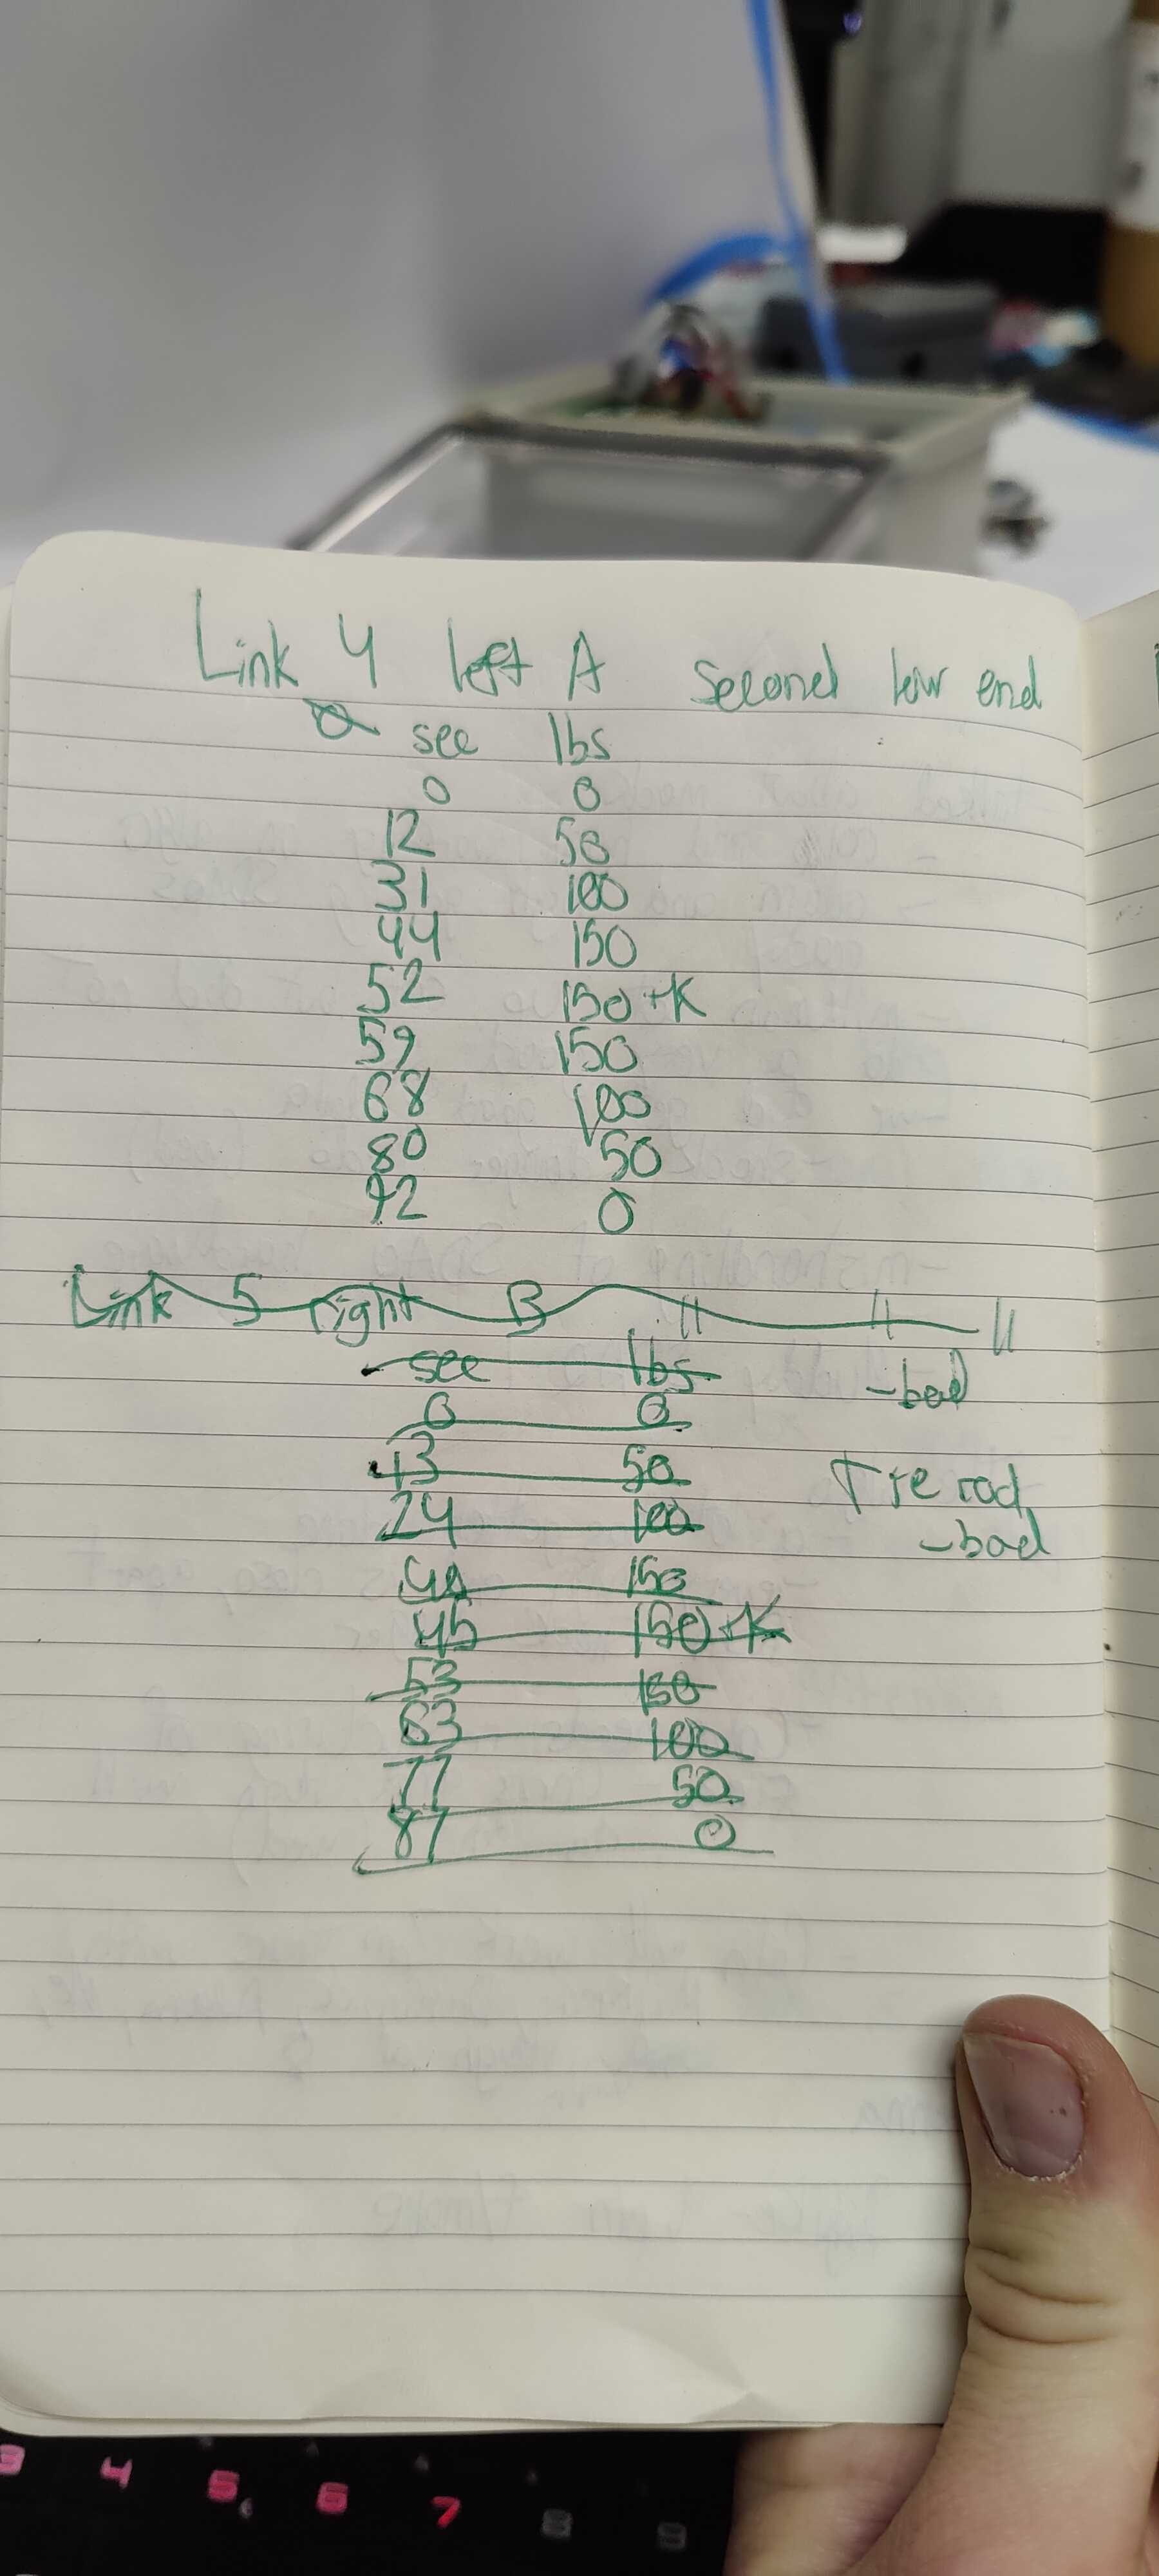 Link 4 left A Second low end
sec lbs
0 0
12 50
31 100
44 150
52 150+K
59 150
68 100
80 50
92 0
Link 5 right B 11 11 11
sec lbs
-bad
0 0
13 50
Tie rod
24 100
-bad
150
45 150+K
53 150
63 100
77 50
87 0
3 4 5 6 7 8 9